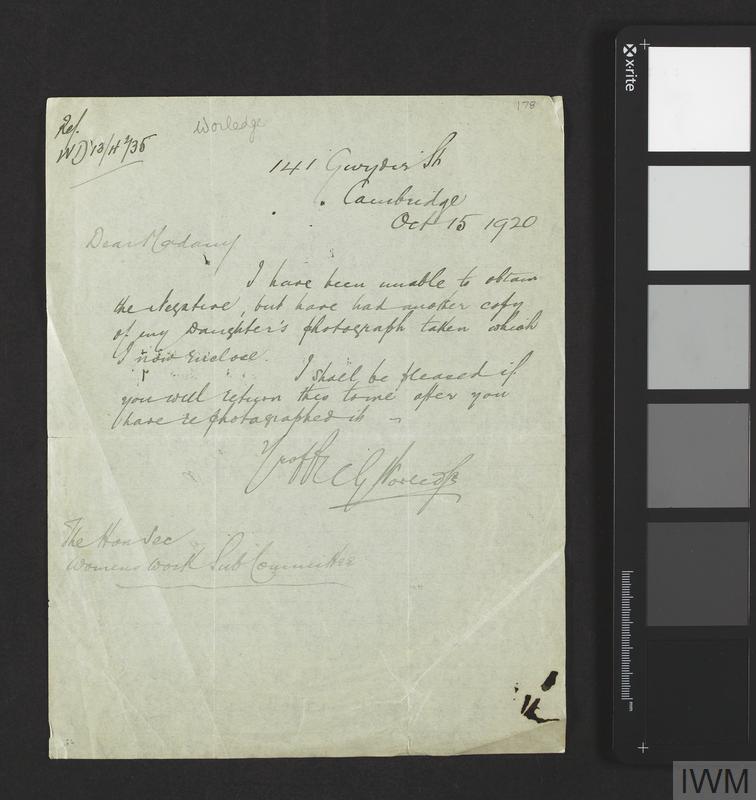 178
Ref. Worledge
141 Gwydir St
Cambridge
Oct 15 1920
Dear Madam
I have been unable to obtain
the Negative, but have had another copy
of my Daughter's photograph taken which
I now enclose.
I shall be pleased if
you will return this to me after you
have re photographed it –
C G Worledge
The Hon Sec
Womens Work Sub Committee
x-rite
mm
IWM